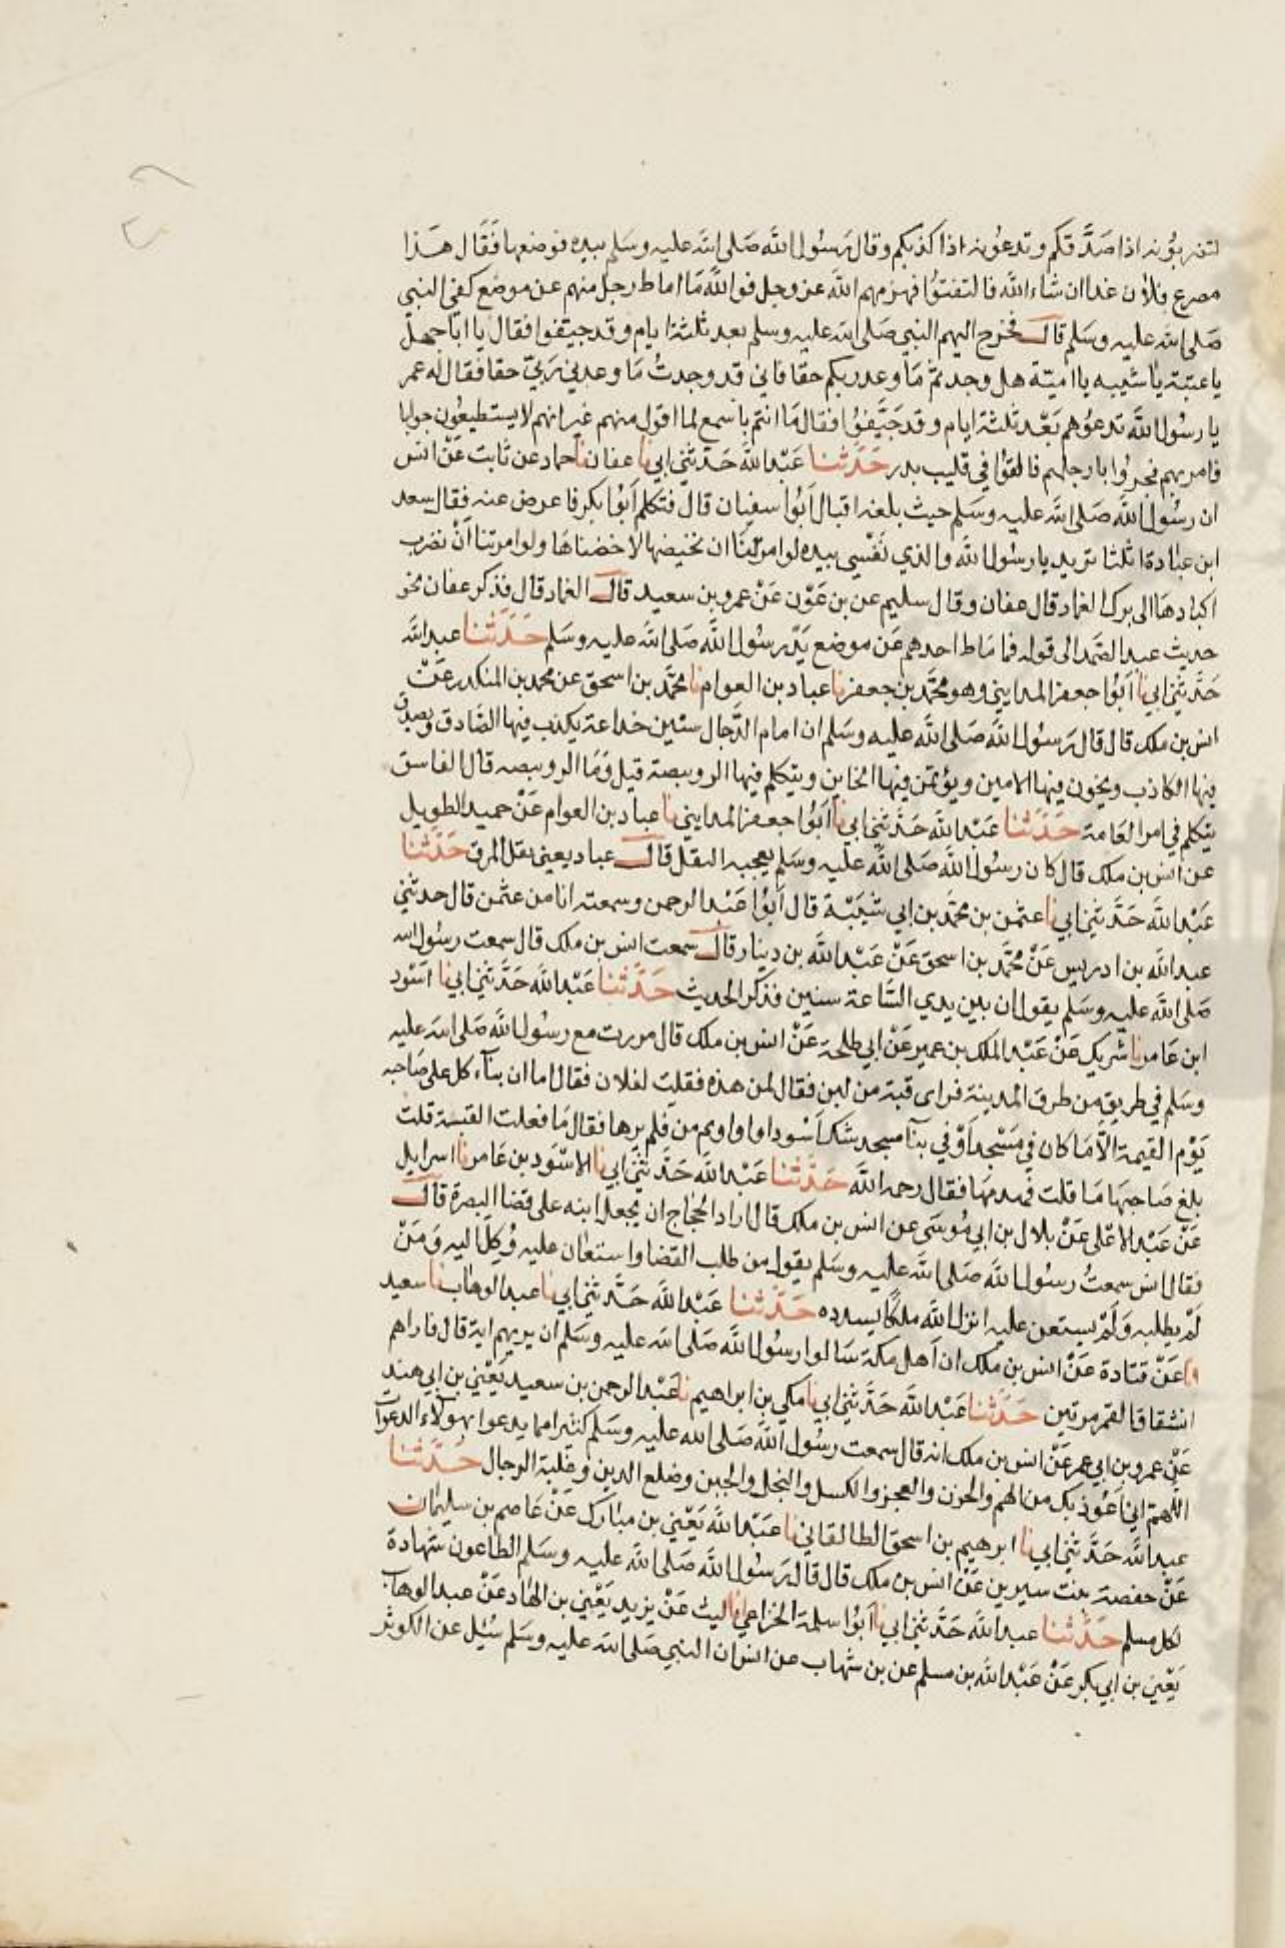 لتضربونه اذا صدقكم وتدعونه اذا كذبكم وقال رسول الله صلى الله عليه وسلم بيده فوضعها فقال هذا
مصرع فلان غدا ان شاء الله فالتفتوا فهزمهم الله عز وجل فوالله ما اماط رجل منهم عن موضع كفي النبي
صلى الله عليه وسلم قال فخرج اليهم النبي صلى الله عليه وسلم بعد ثلثة ايام وقد جيفوا فقال يا ابا جهل
يا عتبة يا شيبه يا امية هل وجدتم ما وعد ربكم حقا فاني قد وجدت ما وعدني ربي حقا فقال له عمر
يا رسول الله تدعوهم بعد ثلثة ايام وقد جيفوا فقال ما انتم باسمع لما اقول منهم غير انهم لا يستطيعون جوابا
فامر بهم فجروا بارجلهم فالقوا في قليب بدر حدثنا عبد الله حدثني ابي نا عفان نا حماد عن ثابت عن انس
ان رسول الله صلى الله عليه وسلم حيث بلغه اقبال ابو سفيان قال فتكلم ابو بكر فاعرض عنه فقال سعد
ابن عبادة تريد يا رسول الله والذي نفسي بيده لو امرتنا ان نخيضها لاخضناها ولو امرتنا ان نضرب
اكبادها الى برك الغماد قال عفان وقال سليم عن بن عون عن عمرو بن سعيد قال الغماد قال فذكر عفان نحو
حديث عبد الصمد الى قوله فما ماط احدهم عن موضع يد رسول الله صلى الله عليه وسلم حدثنا عبد الله
حدثني ابي نا ابو جعفر المدايني وهو محمد بن جعفر نا عباد بن العوام نا محمد بن اسحق عن محمد بن المنكدر عن
انس بن ملك قال قال رسول الله صلى الله عليه وسلم ان امام الدجال سنين خداعة يكذب فيها الصادق ويصدق
فيها الكاذب ويخون فيها الامين ويؤتمن فيها الخاين ويتكلم فيها الرويبضة قيل وما الرويبضه قال الفاسق
يتكلم في امر العامة حدثنا عبد الله حدثني ابي نا ابو جعفر المدايني نا عباد بن العوام عن حميد الطويل
عن انس بن ملك قال كان رسول الله صلى الله عليه وسلم يعجبه الثقل قال عباد يعني ثقل المرق حدثنا
عبد الله حدثني ابي نا عثمن بن محمد بن ابي شيبة قال ابو عبد الرحمن وسمعته انا من عثمن قال حدثني
عبد الله بن ادريس عن محمد بن اسحق عن عبد الله بن دينار قال سمعت انس بن ملك قال سمعت رسول الله
صلى الله عليه وسلم يقول ان بين يدي الساعة سنين فذكر الحديث حدثنا عبد الله حدثني ابي نا اسود
ابن عامر نا شريك عن عبد الملك بن عمير عن ابي طلحة عن انس بن ملك قال مررت مع رسول الله صلى الله عليه
وسلم في طريق من طرق المدينة فراى قبة من لبن فقال لمن هذه فقلت لفلان فقال اما ان بناء كل على صاحبه
يوم القيمة الا ما كان في مسجد او في بنا مسجد شك اسود او او او ثم مر فلم يرها فقال ما فعلت القبة قلت
بلغ صاحبها ما قلت فهدمها فقال رحمه الله حدثنا عبد الله حدثني ابي نا الاسود بن عامر نا اسرايل
عن عبد الاعلى عن بلال بن ابي موسى عن انس بن ملك قال اراد الحجاج ان يجعل ابنه على قضا البصرة قال
فقال انس سمعت رسول الله صلى الله عليه وسلم يقول من طلب القضا واستعان عليه وكل اليه ومن
لم يطلبه ولم يستعن عليه انزل الله ملكا يسدده حدثنا عبد الله حدثني ابي نا عبد الوهاب نا سعيد
عن قتادة عن انس بن ملك ان اهل مكة سالوا رسول الله صلى الله عليه وسلم ان يريهم اية قال فاراهم
انشقاق القمر مرتين حدثنا عبد الله حدثني ابي نا مكي بن ابراهيم نا عبد الرحمن بن سعيد يعني بن ابي هند
عن عمرو بن ابي عمر عن انس بن ملك انه قال سمعت رسول الله صلى الله عليه وسلم كثيرا مما يدعوا بهولاء الدعوات
اللهم اني اعوذ بك من الهم والحزن والعجز والكسل والبخل والجبن وضلع الدين وغلبة الرجال حدثنا
عبد الله حدثني ابي نا ابرهيم بن اسحق الطالقاني نا عبد الله يعني بن مبارك عن عاصم بن سليمان
عن حفصة بنت سيرين عن انس بن ملك قال قال رسول الله صلى الله عليه وسلم الطاعون شهادة
لكل مسلم حدثنا عبد الله حدثني ابي نا ابو سلمة الخزاعي انا ليث عن يزيد يعني بن الهاد عن عبد الوهاب
يعني بن ابي بكر عن عبد الله بن مسلم عن بن شهاب عن انس ان النبي صلى الله عليه وسلم سئل عن الكوثر